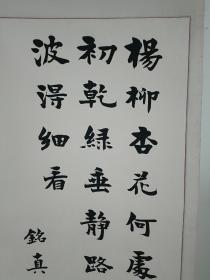 楊柳杏花何處
初乾綠垂靜路
波淂細看
銘真